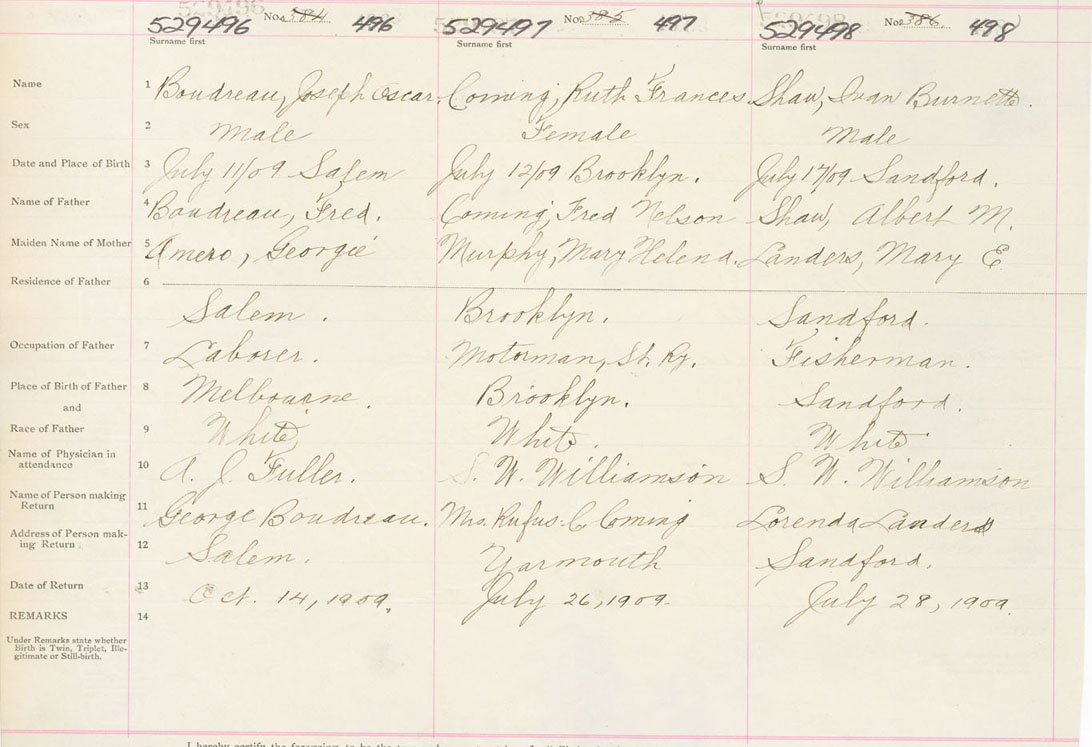 529496 No. 384 496 529497 No. 385 497 529498 No. 386 498
Surname first Surname first Surname first
Name 1 Boudreau, Joseph Oscar. Coming, Ruth Frances. Shaw, Ivan Burnett.
Sex 2 Male Female Male
Date and Place of Birth 3 July 11/09 Salem July 12/09 Brooklyn. July 17/09 Sandford.
Name of Father 4 Boudreau, Fred. Coming, Fred Nelson Shaw, Albert M.
Maiden Name of Mother 5 Amero, Georgie Murphy, Mary Helena. Landers, Mary E
Residence of Father 6
Salem. Brooklyn. Sandford.
Occupation of Father 7 Laborer. Motorman, St. Ry. Fisherman.
Place of Birth of Father 8 Melbourne. Brooklyn. Sandford.
and
Race of Father 9 White, White. White
Name of Physician in
attendance 10 A. J. Fuller. S. W. Williamson S. W. Williamson
Name of Person making
Return 11 George Boudreau. Mrs. Rufus C Coming Lorenda Landers
Address of Person mak-
ing Return 12 Salem. Yarmouth Sandford.
Date of Return 13 Oct. 14, 1909. July 26, 1909. July 28, 1909.
REMARKS 14
Under Remarks state whether
Birth is Twin, Triplet, Ille-
gitimate or Still-birth.
I hereby certify the foregoing to be the